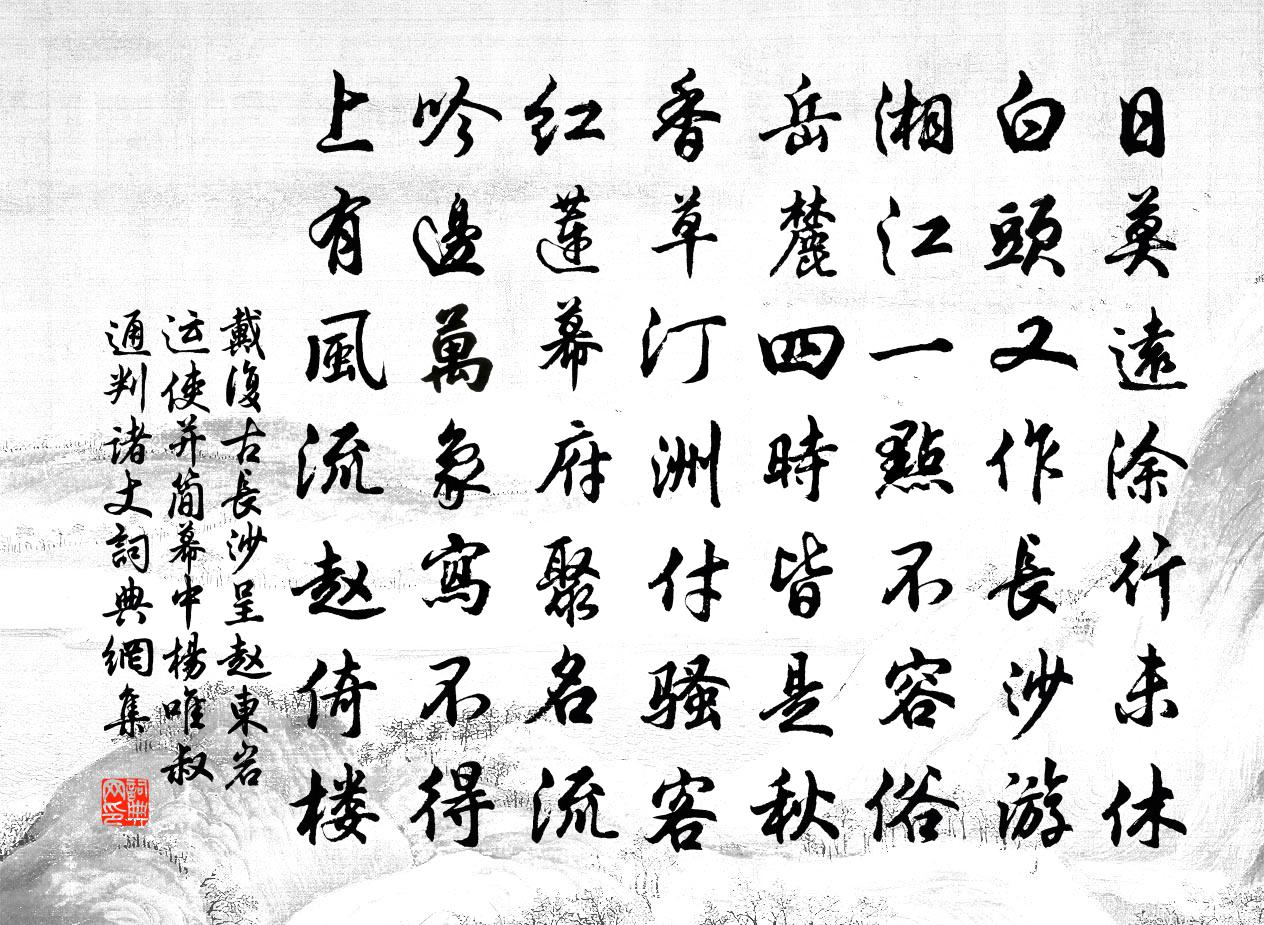 日莫遠涂行未休
白頭又作長沙游
湘江一點不容俗
岳麓四時皆是秋
香草汀洲付騷客
红蓮幕府聚名流
吟邊萬象寫不得
上有風流赵倚楼
戴復古長沙呈赵東岩
运使并简幕中楊唯叔
通判诸丈詞典網集
詞典網印